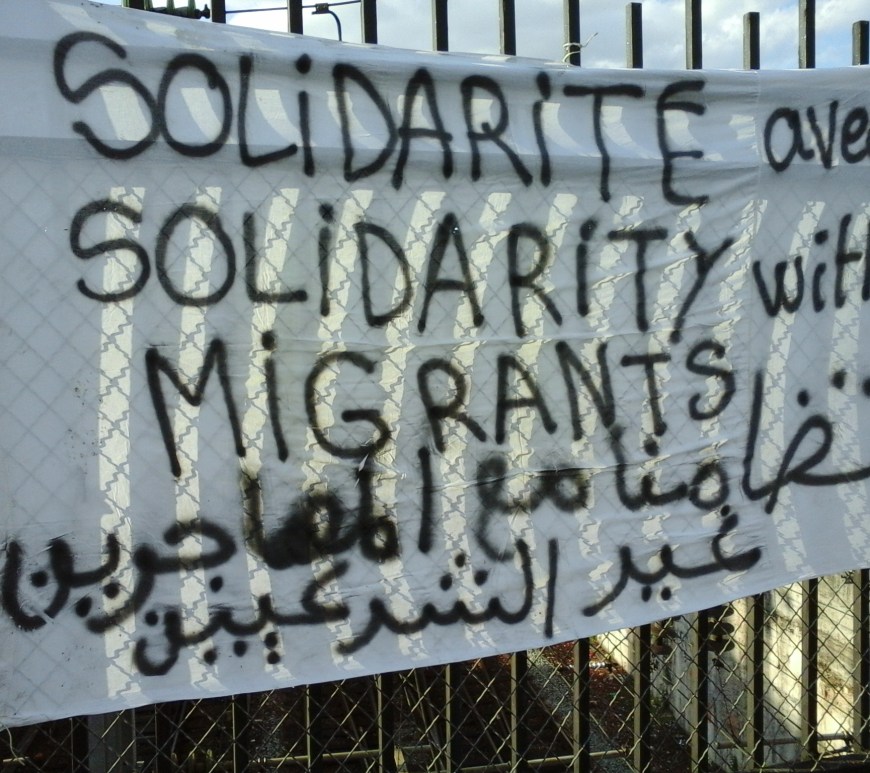 SOLiDARiTE ave
SOLiDARiTY with
MiGRANTS
تضامنا مع المهاجرين
غير الشرعيين